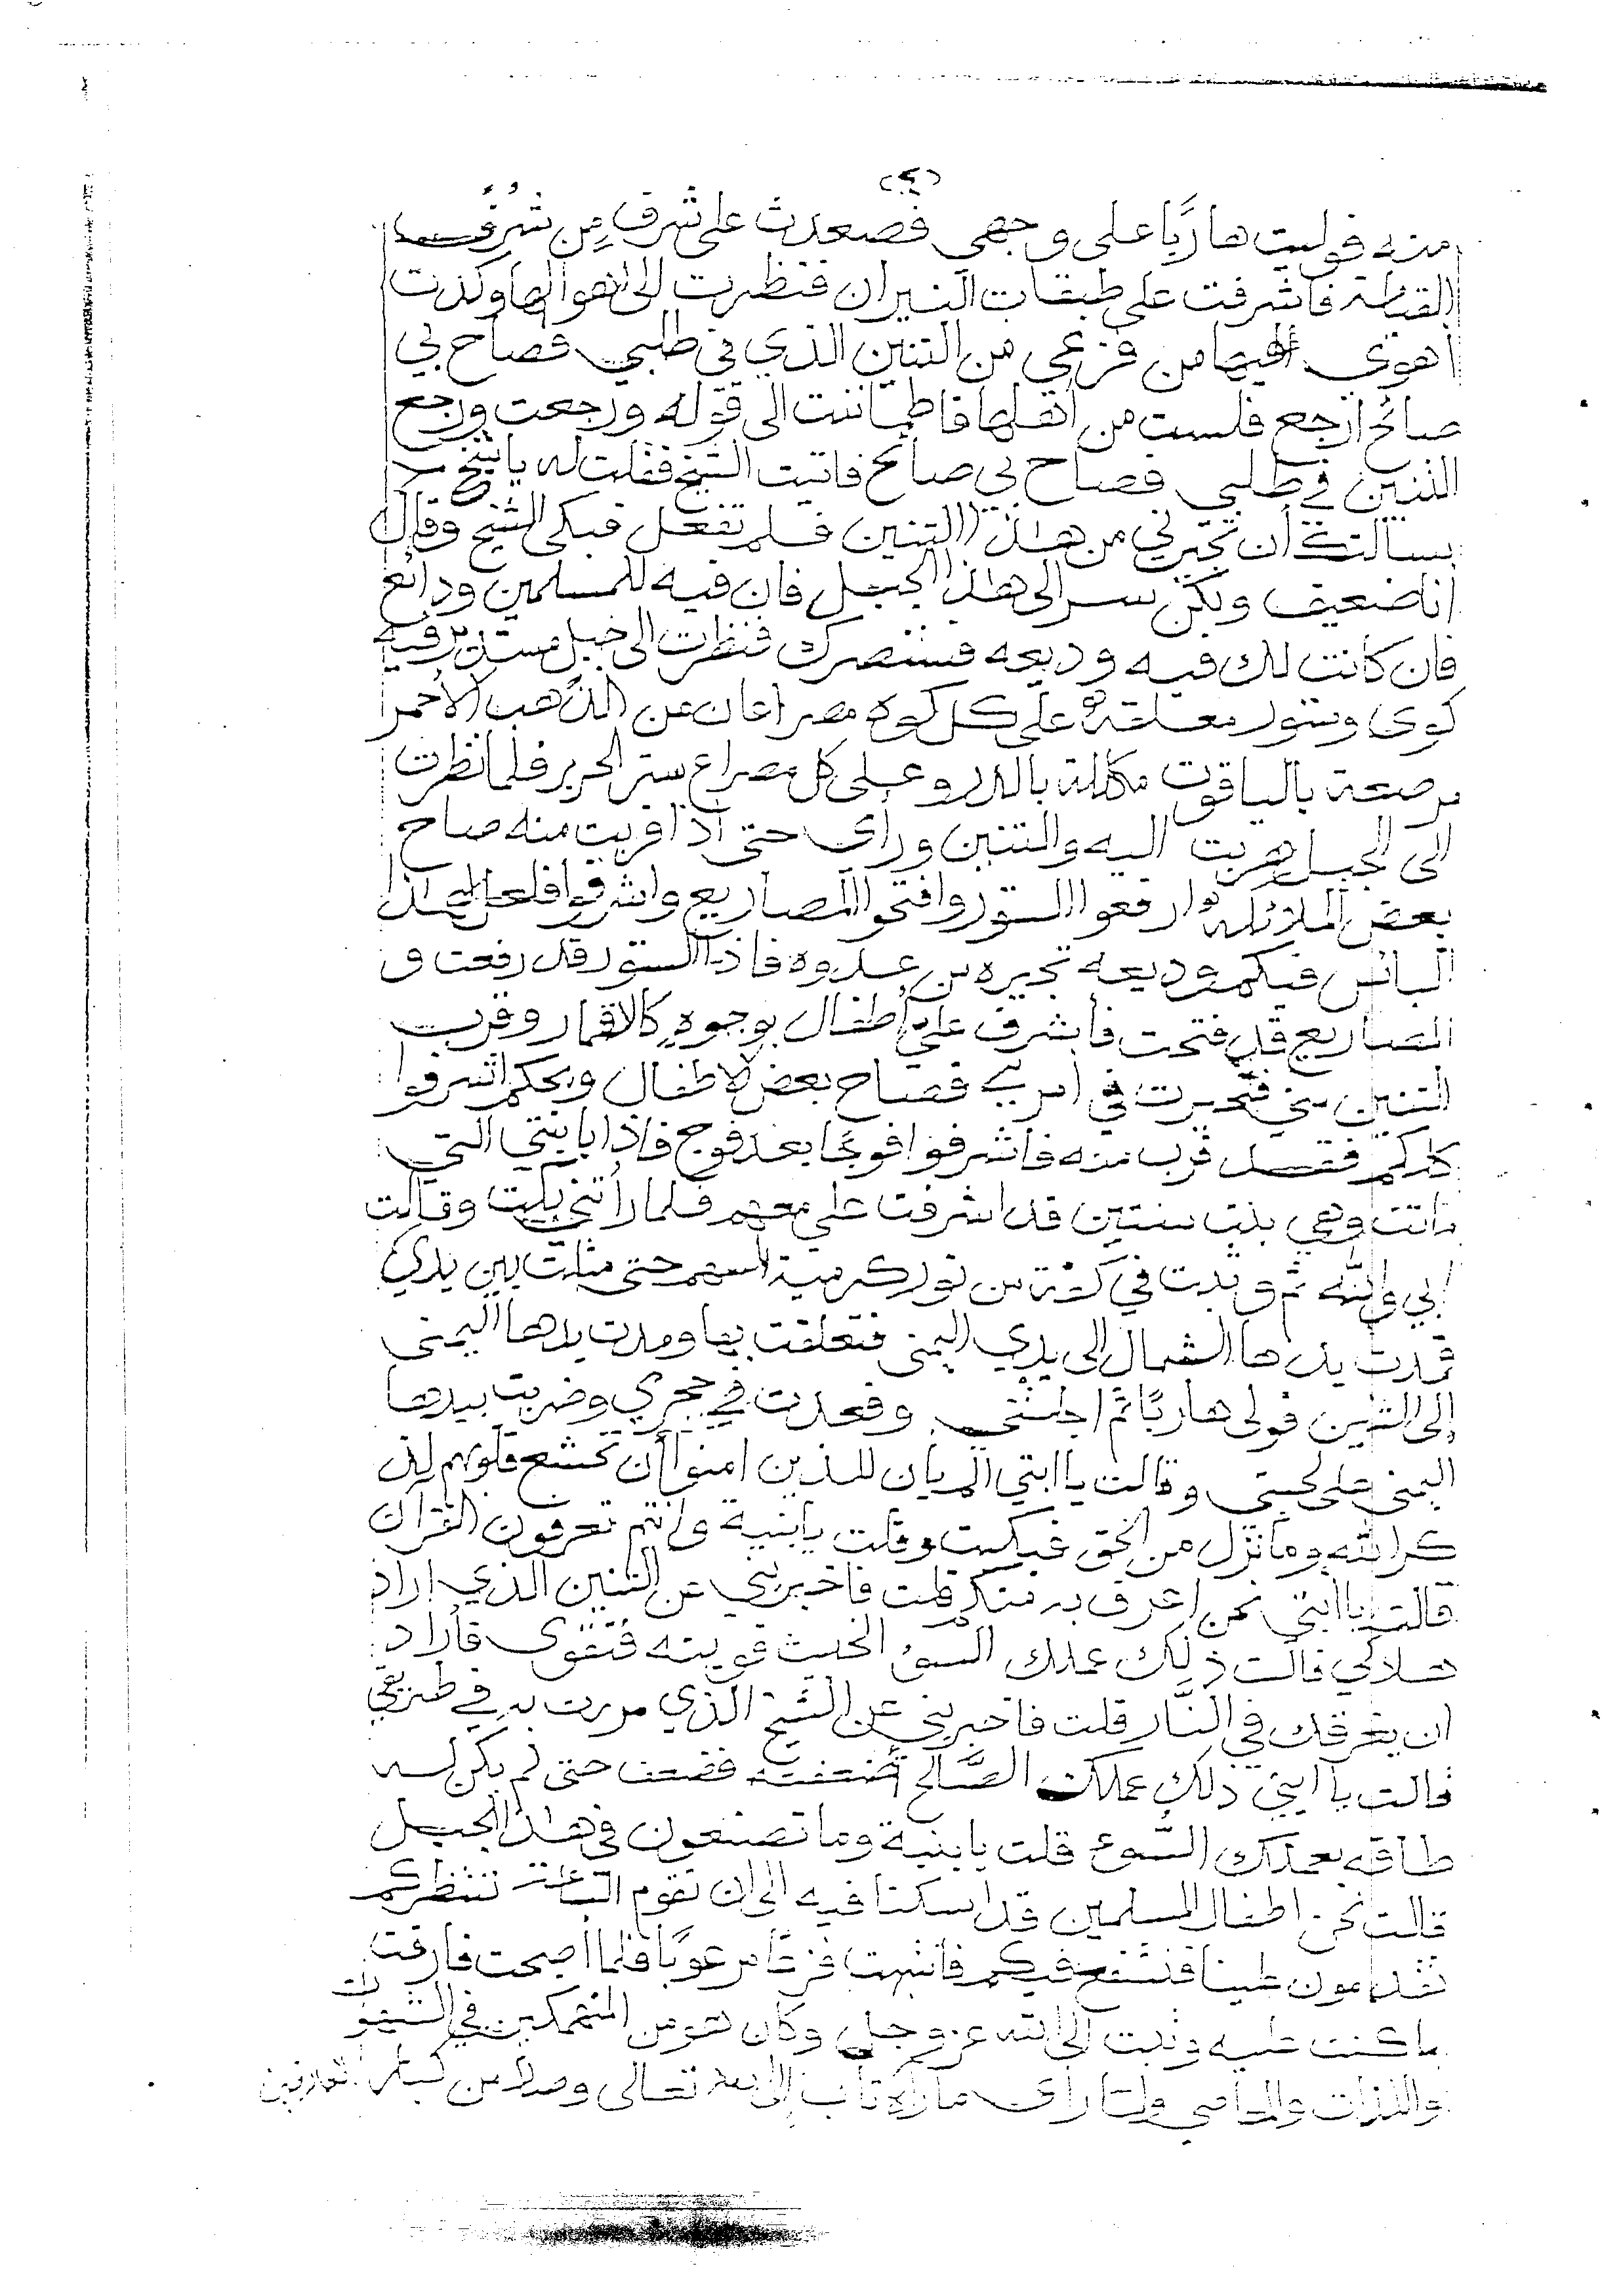 (٤)
منه فوليت هاربًا على وجهي فصعدت على شرفٍ من شُرَفِ
القيامة فاشرفت على طبقات النيران فنظرت الى اهوالها وكدت
اهوي فيها من فزعي من التنين الذي في طلبي فصاح بي
صائح ارجع فلست من اهلها فاطماننت الى قوله ورجعت ورجع
التنين في طلبي فصاح بي صائح فاتيت الشيخ فقلت له ياشيخ
سالتك أن تجيرني من هذا التنين فلم تفعل فبكى الشيخ وقال
انا ضعيف ولكن سر الى هذا الجبل فان فيه للمسلمين ودائع
فان كانت لك فيه وديعه فستنصرك فنظرت الى جبل مستدير فيه
كوى وستور معلقة على كل كوة مصراعان من الذهب الاحمر
مرصعة بالياقوت مكللة بالدر وعلى كل مصراع ستر الحرير فلما نظرت
الى الجبل هربت اليه والتنين ورائي حتى اذا قربت منه صاح
بعض الملائكة ارفعوا الستور وافتحوا المصاريع واشرفوا فلعل لهذا
البائس فيكم وديعه تجيره من عدوه فاذا الستور قد رفعت و
المصاريع قد فتحت فأشرف علي اطفال بوجوهٍ كالاقمار وقرب
التنين مني فتحيرت في امري فصاح بعض الاطفال ويحكم اشرفوا
كلكم فقد قرب منه فأشرفوا فوجًا بعد فوج فاذا بابنتي التي
ماتت وهي بنت سنتين قد اشرفت علي معهم فلما رأتني بكت وقالت
ابي والله ثم وثبت في كفة من نور كرمية السهم حتى مثلت بين يدي
فمدت يدها الشمال الى يدي اليمنى فتعلقت بها ومدت يدها اليمنى
إلى التنين فولى هاربًا ثم اجلستني وقعدت في حجري وضربت بيدها
اليمنى على لحيتي وقالت يا ابتي الم يان للذين امنوا أن تخشع قلوبهم لذ
كر الله وما نزل من الحق فبكيت وقلت يابنية وانتم تعرفون القرآن
قالت يا ابتي نحن اعرف به منكم قلت فاخبريني عن التنين الذي اراد
هلاكي قالت ذلك عملك السوء الخبيث قويته فتقوى فأراد
ان يغرقك في النَّار قلت فاخبريني عن الشيخ الذي مررت به في طريقي
قالت يا ابتي ذلك عملك الصَّالح أضعفته فضعف حتى لم يكن له
طاقه بعملك السُّوء قلت يابنية وما تصنعون في هذا الجبل
قالت نحن اطفال المسلمين قد اسكنا فيه الى ان تقوم الساعة ننتظركم
تقدمون علينا فنشفع فيكم فانتبهت فزعًا مرعوبًا فلما اصبحت فارقت
ما كنت عليه وتبت الى الله عز وجل وكان هو من المنهمكين في الشهوات
واللذات والمعاصي ولما رأى ما رآه تاب الى الله تعالى وصار من كبار العارفين